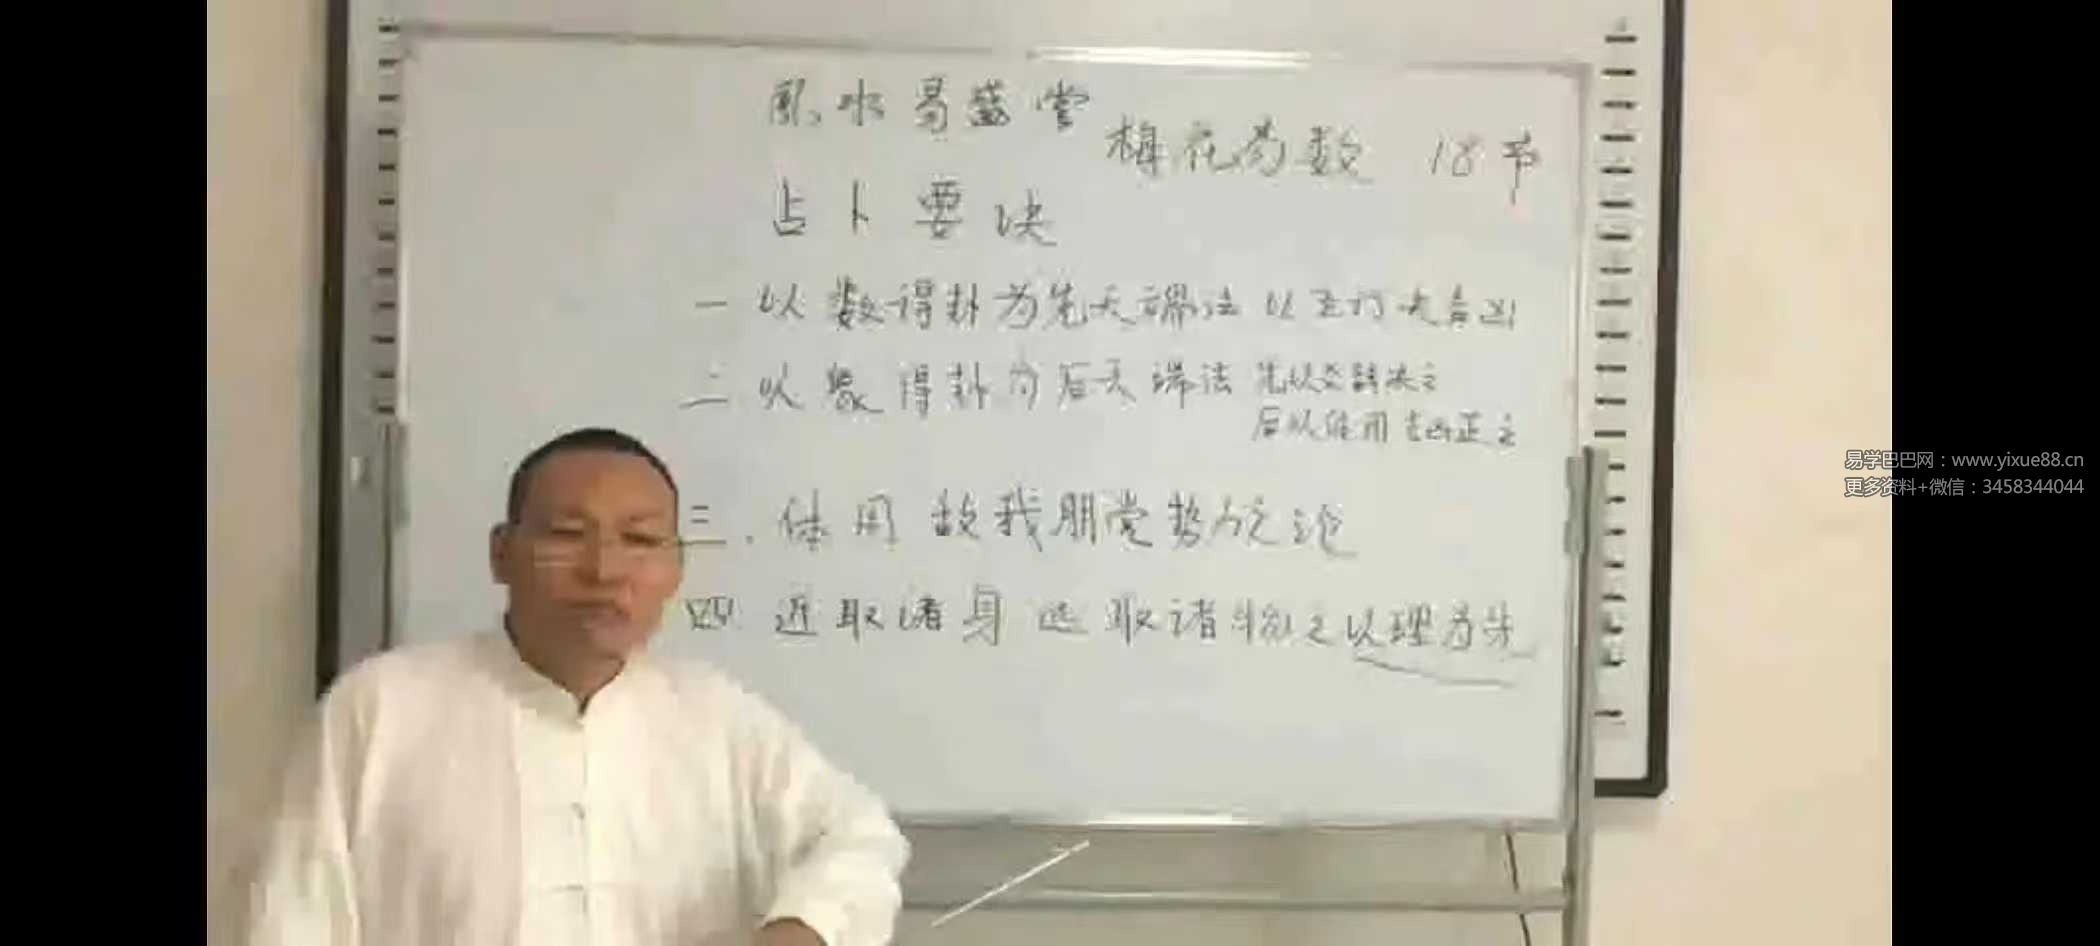 风水易盛堂
梅花易数 18节
占卜要决
一 以数得卦为先天端法 以五行决吉凶
二 以象得卦为后天端法 先以爻辞决之
后以体用吉凶正之
三.体用敌我朋党势力之论
四 近取诸身远取诸物之以理为先
易学巴巴网：www.yixue88.cn
更多资料+微信：3458344044